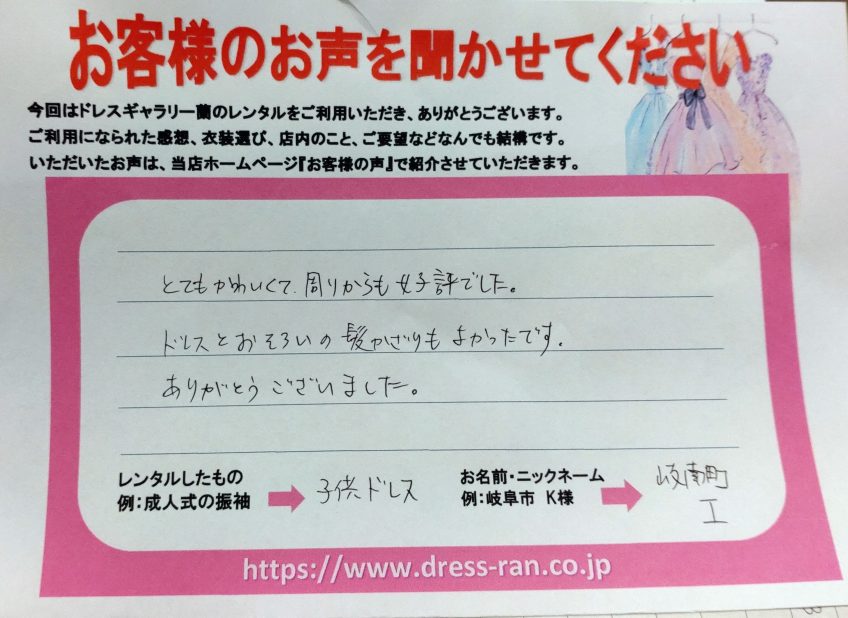 お客様のお声を聞かせてください
今回はドレスギャラリー蘭のレンタルをご利用いただき、ありがとうございます。
ご利用になられた感想、衣装選び、店内のこと、ご要望などなんでも結構です。
いただいたお声は、当店ホームページ『お客様の声』で紹介させていただきます。
とてもかわいくて、周りからも好評でした。
ドレスとおそろいの髪かざりもよかったです。
ありがとうございました。
レンタルしたもの
例：成人式の振袖
子供ドレス
お名前・ニックネーム
例：岐阜市 K様
岐南町
エ
https://www.dress-ran.co.jp